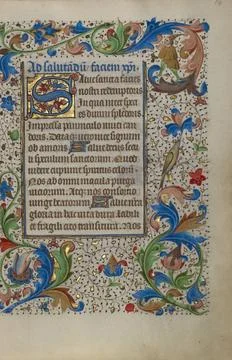 Ad salutadū faciem xp̄i
Salue sancta facies
nostri redemptoris
In qua nitet spe
cies diuini splēdoris
Impressa panniculo niuei can
doris Dataq; veronice signum
ob amoris Salue decus seculi
speculum sanctorum Quod
videre cupiunt spiritus celorū
Nos ab omni macula purga
viciorum Atq; nos consorcio
iunge beatorum Salue n̄ra
gloria in hac vita dura labili
et fragili cito transitura Nos